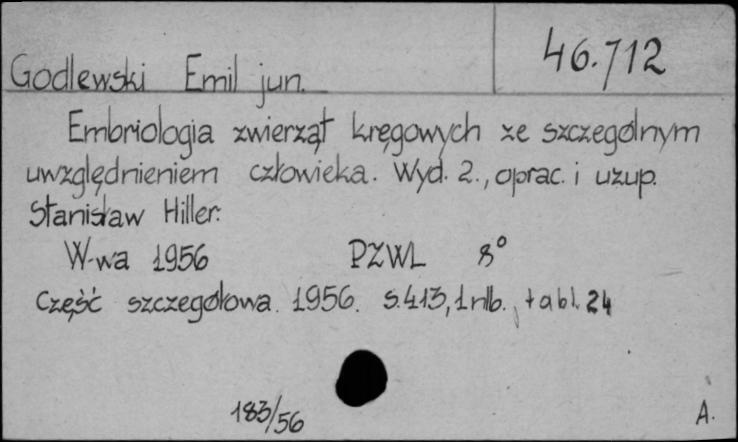 46.712
Godlewski Emil jun.
Embriologia zwierząt kręgowych ze szczególnym
uwzględnieniem człowieka. Wyd. 2., oprac. i uzup.
Stanisław Hiller.
W-wa 1956 PZWL 8°
Część szczegółowa. 1956. s.413, 1 nlb., tabl. 24
183/56
A.